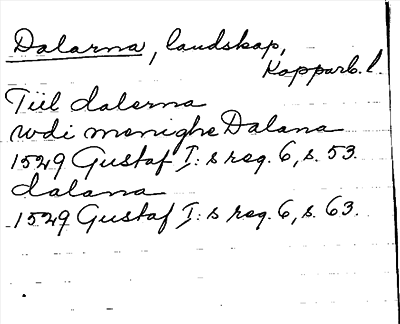 Dalarna, landskap,
Kopparb. l.
Till dalerna
wdi menighe Dalana
1529 Gustaf I:s reg. 6, s. 53.
dalana
1529 Gustaf I:s reg. 6, s. 63.